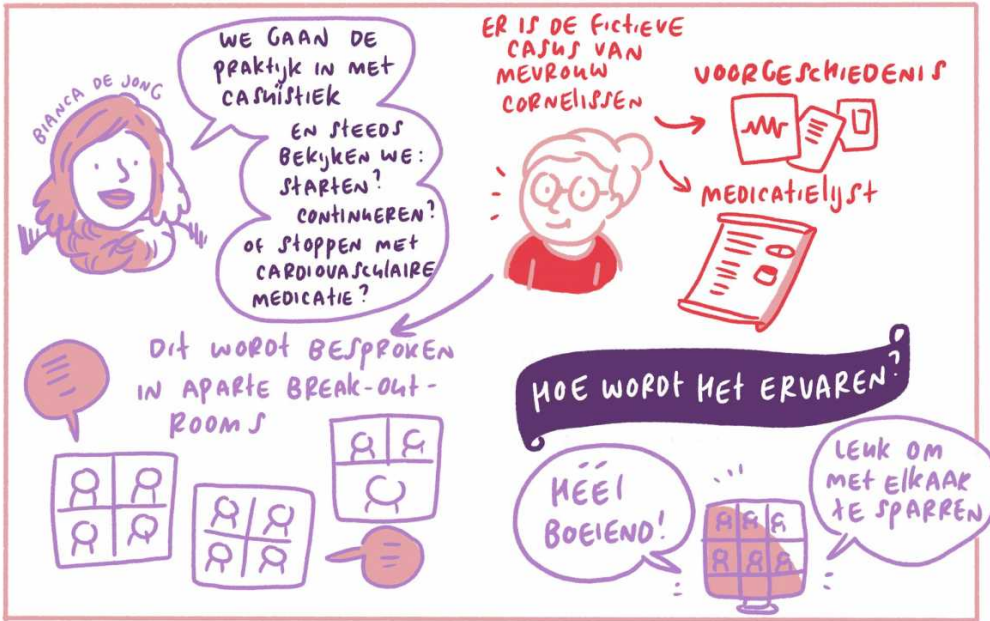 BIANCA DE JONG
WE GAAN DE
PRAKTIJK IN MET
CASUÏSTIEK
EN STEEDS
BEKIJKEN WE:
STARTEN?
CONTINUEREN?
OF STOPPEN MET
CARDIOVASCULAIRE
MEDICATIE?
ER IS DE FICTIEVE
CASUS VAN
MEVROUW
CORNELISSEN
VOORGESCHIEDENIS
MEDICATIELIJST
DIT WORDT BESPROKEN
IN APARTE BREAK-OUT-
ROOMS
HOE WORDT HET ERVAREN?
HÉÉL
BOEIEND!
LEUK OM
MET ELKAAR
TE SPARREN